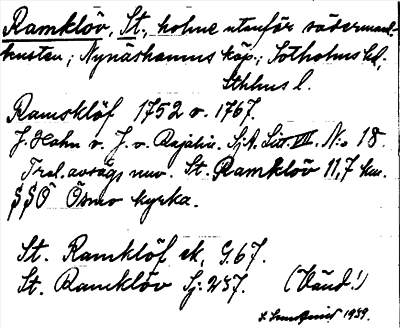 Ramklöv, St., holme utanför söderman-
kusten; Nynäshamns köp.; Sotholms hd,
Sthlms l.
Ramsklöf 1752 o. 1767.
J. Hahn o. J. v. Rajalin. Sj.A. Litt. VIII. N:o 18.
Trol. avsågs nuv. St. Ramklöv 11,7 km.
SSÖ Ösmo kyrka.
St. Ramklöf ek, G. 67.
St. Ramklöv Sj: 257. (Vänd!)
1939.